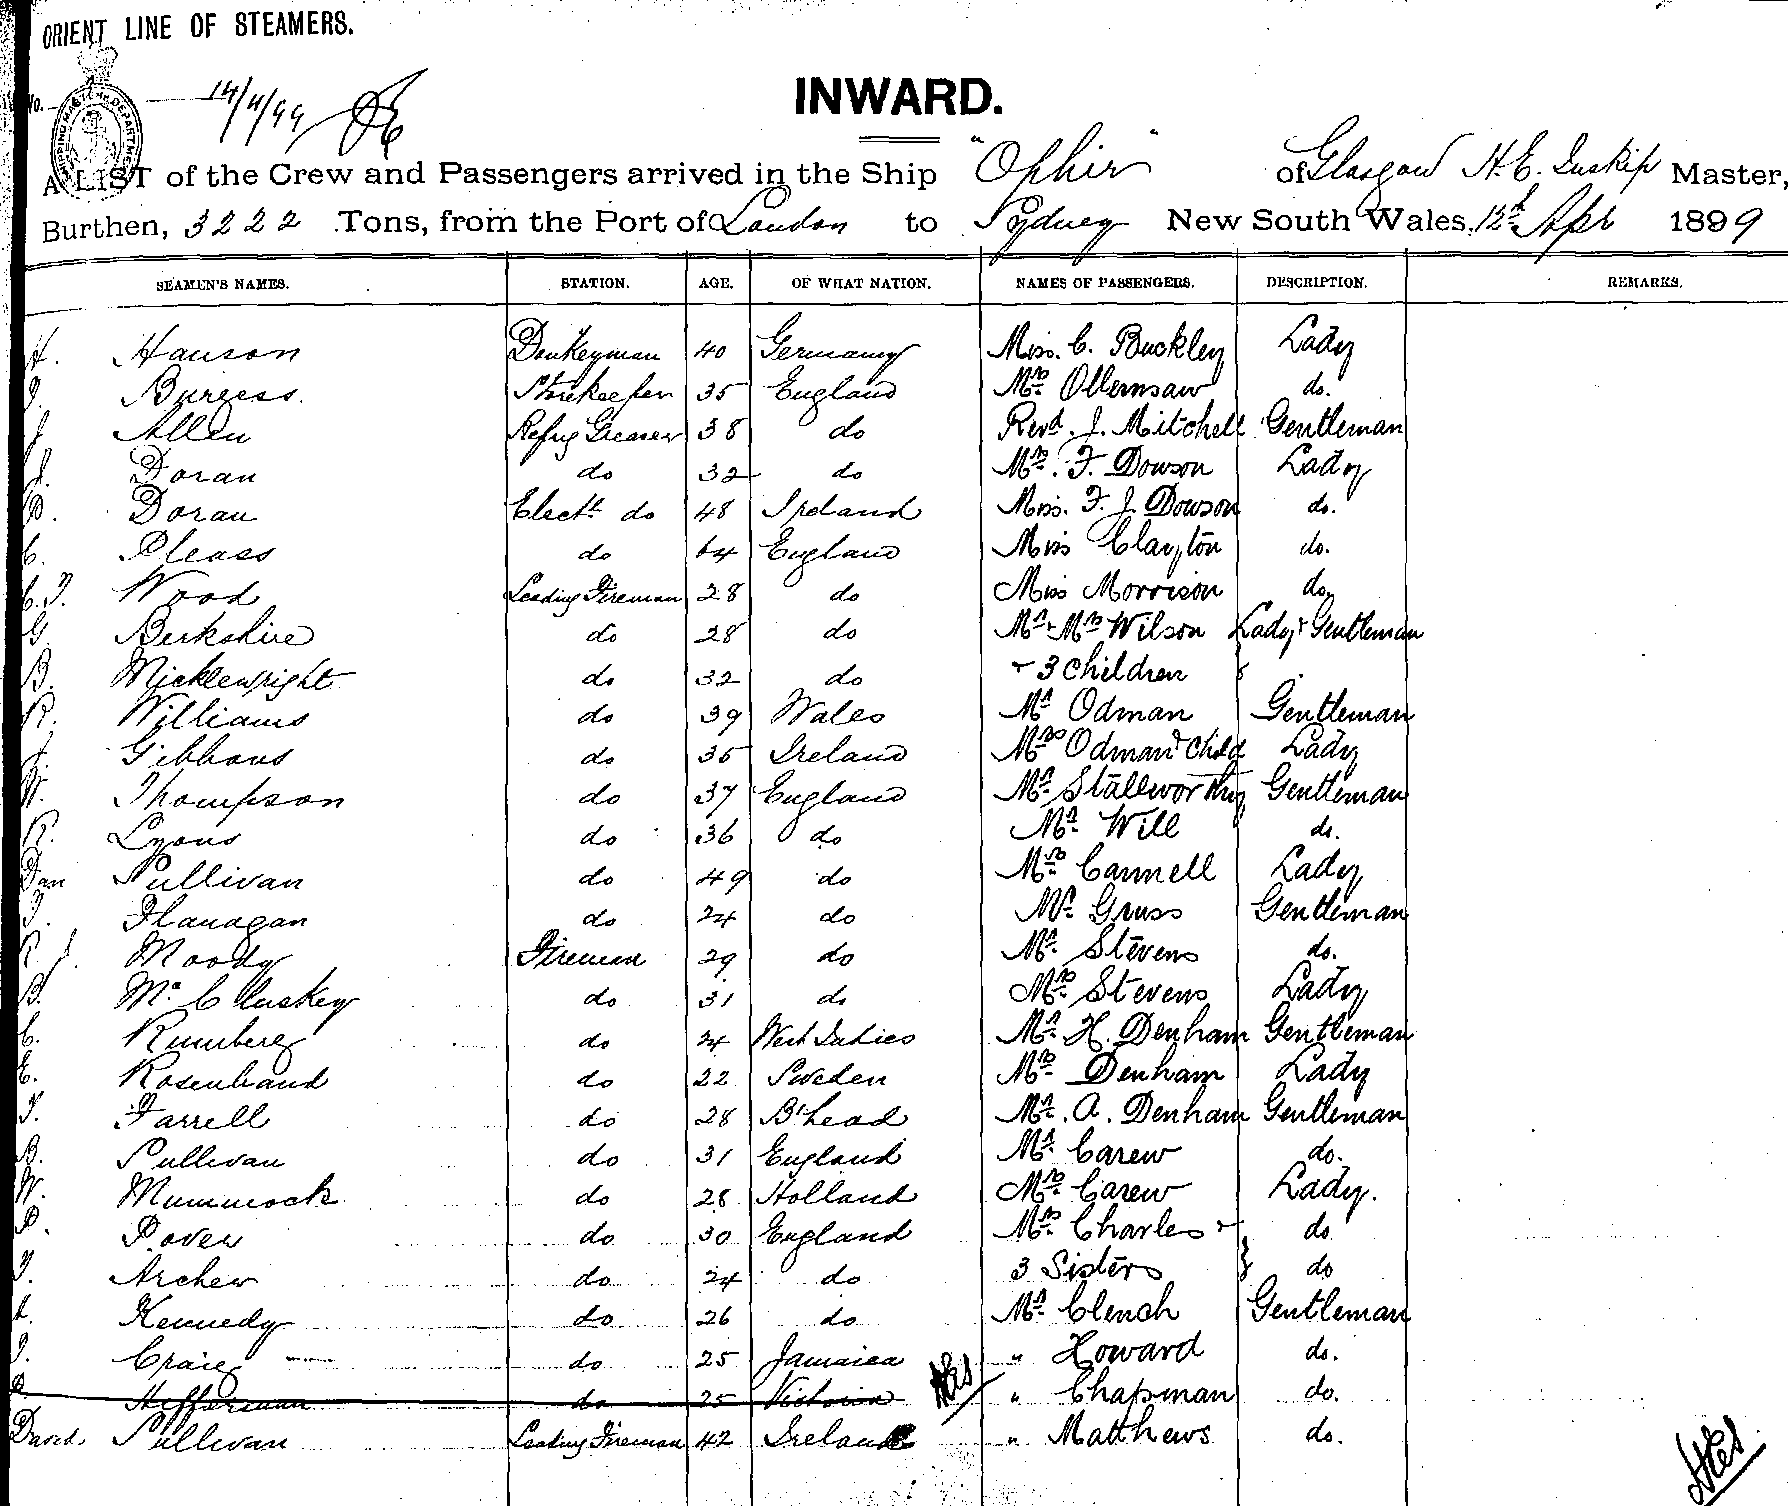 ORIENT LINE OF STEAMERS.
No.
14/4/99
INWARD.
A LIST of the Crew and Passengers arrived in the Ship "Ophir" of Glasgow H. E. Inskip Master,
Burthen, 3222 Tons, from the Port of London to Sydney New South Wales, 12th Apr 1899
SEAMEN'S NAMES. STATION. AGE. OF WHAT NATION. NAMES OF PASSENGERS. DESCRIPTION. REMARKS.
H. Hanson Donkeyman 40 Germany Miss. C. Buckley Lady
Burgess. Storekeeper 35 England Mrs Ollernsaw do.
J. Allen Refrig Greaser 38 do Revd. J. Mitchell Gentleman
J. Doran do 32 do Mrs. F. Dowson Lady
Doran Elect. do 48 Ireland Miss. F. J. Dowson do.
C. Pleass do 64 England Miss Clayton do.
C. J. Wood Leading Fireman 28 do Miss Morrison do.
G. Berkshire do 28 do Mr & Mrs Wilson Lady & Gentleman
B. Micklewright do 32 do + 3 children
R. Williams do 39 Wales Mr Odman Gentleman
J. Gibbons do 35 Ireland Mrs Odman & Child Lady
W. Thompson do 37 England Mr. Stallworthy Gentleman
R. Lyons do 36 do Mr. Will do.
Dan Sullivan do 49 do Mrs Cannell Lady
J. Flanagan do 24 do Mr. Gruss Gentleman
R. J. Moody Fireman 29 do Mr. Stevens do.
B. McCluskey do 31 do Mrs Stevens Lady
C. Rumberg do 24 West Indies Mr. H. Denham Gentleman
E. Rosenbrand do 22 Sweden Mrs Denham Lady
J. Farrell do 28 B'head Mr. A. Denham Gentleman
B. Sullivan do 31 England Mr Carew do.
W. Mummock do 28 Holland Mrs Carew Lady.
P. Pover do 30 England Mrs Charles + do
J. Archer do 24 do 3 Sisters do
Kennedy do 26 do Mr. Clench Gentleman
J. Craig do 25 Jamaica " Howard do.
Heffernan do 25 Victoria " Chapman do.
David Sullivan Leading Fireman 42 Ireland " Matthews do.